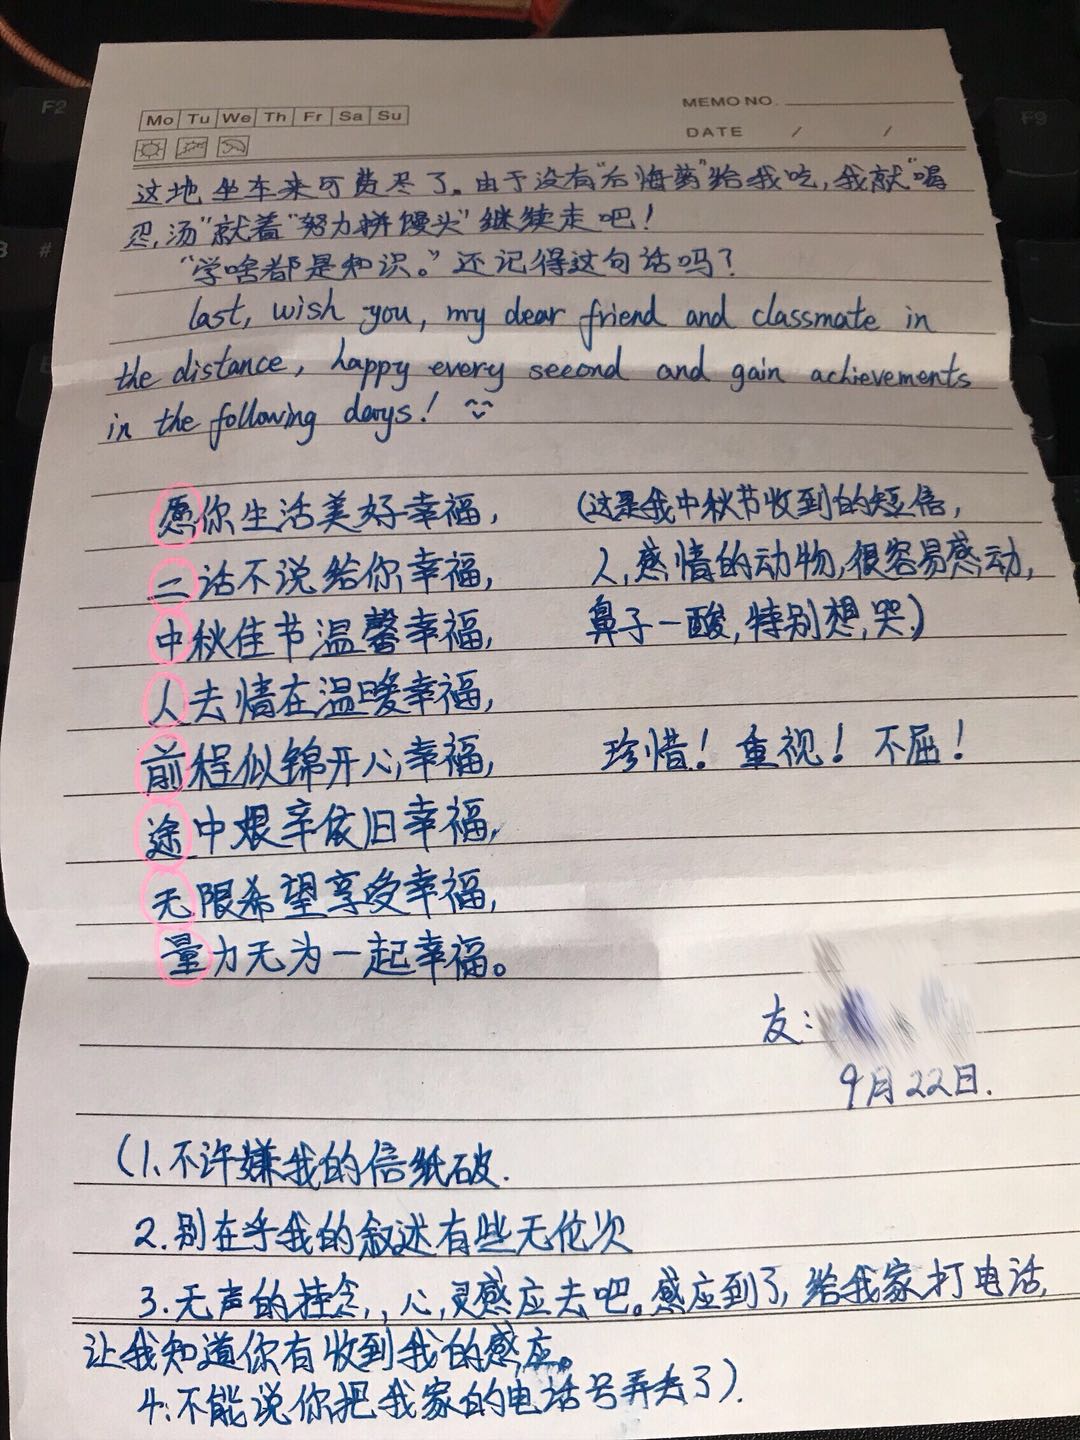 Mo Tu We Th Fr Sa Su
MEMO NO.
DATE / /
这地坐车来可费尽了。由于没有“后悔药”给我吃,我就“喝
忍,汤”就着“努力拼馒头”继续走吧!
“学啥都是知识。”还记得这句话吗?
last, wish you, my dear friend and classmate in
the distance, happy every second and gain achievements
in the following days!
愿你生活美好幸福,
二话不说给你幸福,
中秋佳节温馨幸福,
人去情在温暖幸福,
前程似锦开心幸福,
途中艰辛依旧幸福,
无限希望享受幸福,
量力无为一起幸福。
(这是我中秋节收到的短信,
人,感情的动物,很容易感动,
鼻子一酸,特别想,哭.)
珍惜! 重视! 不屈!
友:
9月22日.
(1、不许嫌我的信纸破.
2.别在乎我的叙述有些无伦次
3.无声的挂念,,心灵感应去吧。感应到了,给我家打电话,
让我知道你有收到我的感应。
4:不能说你把我家的电话号弄丢了).
F2
F9
#